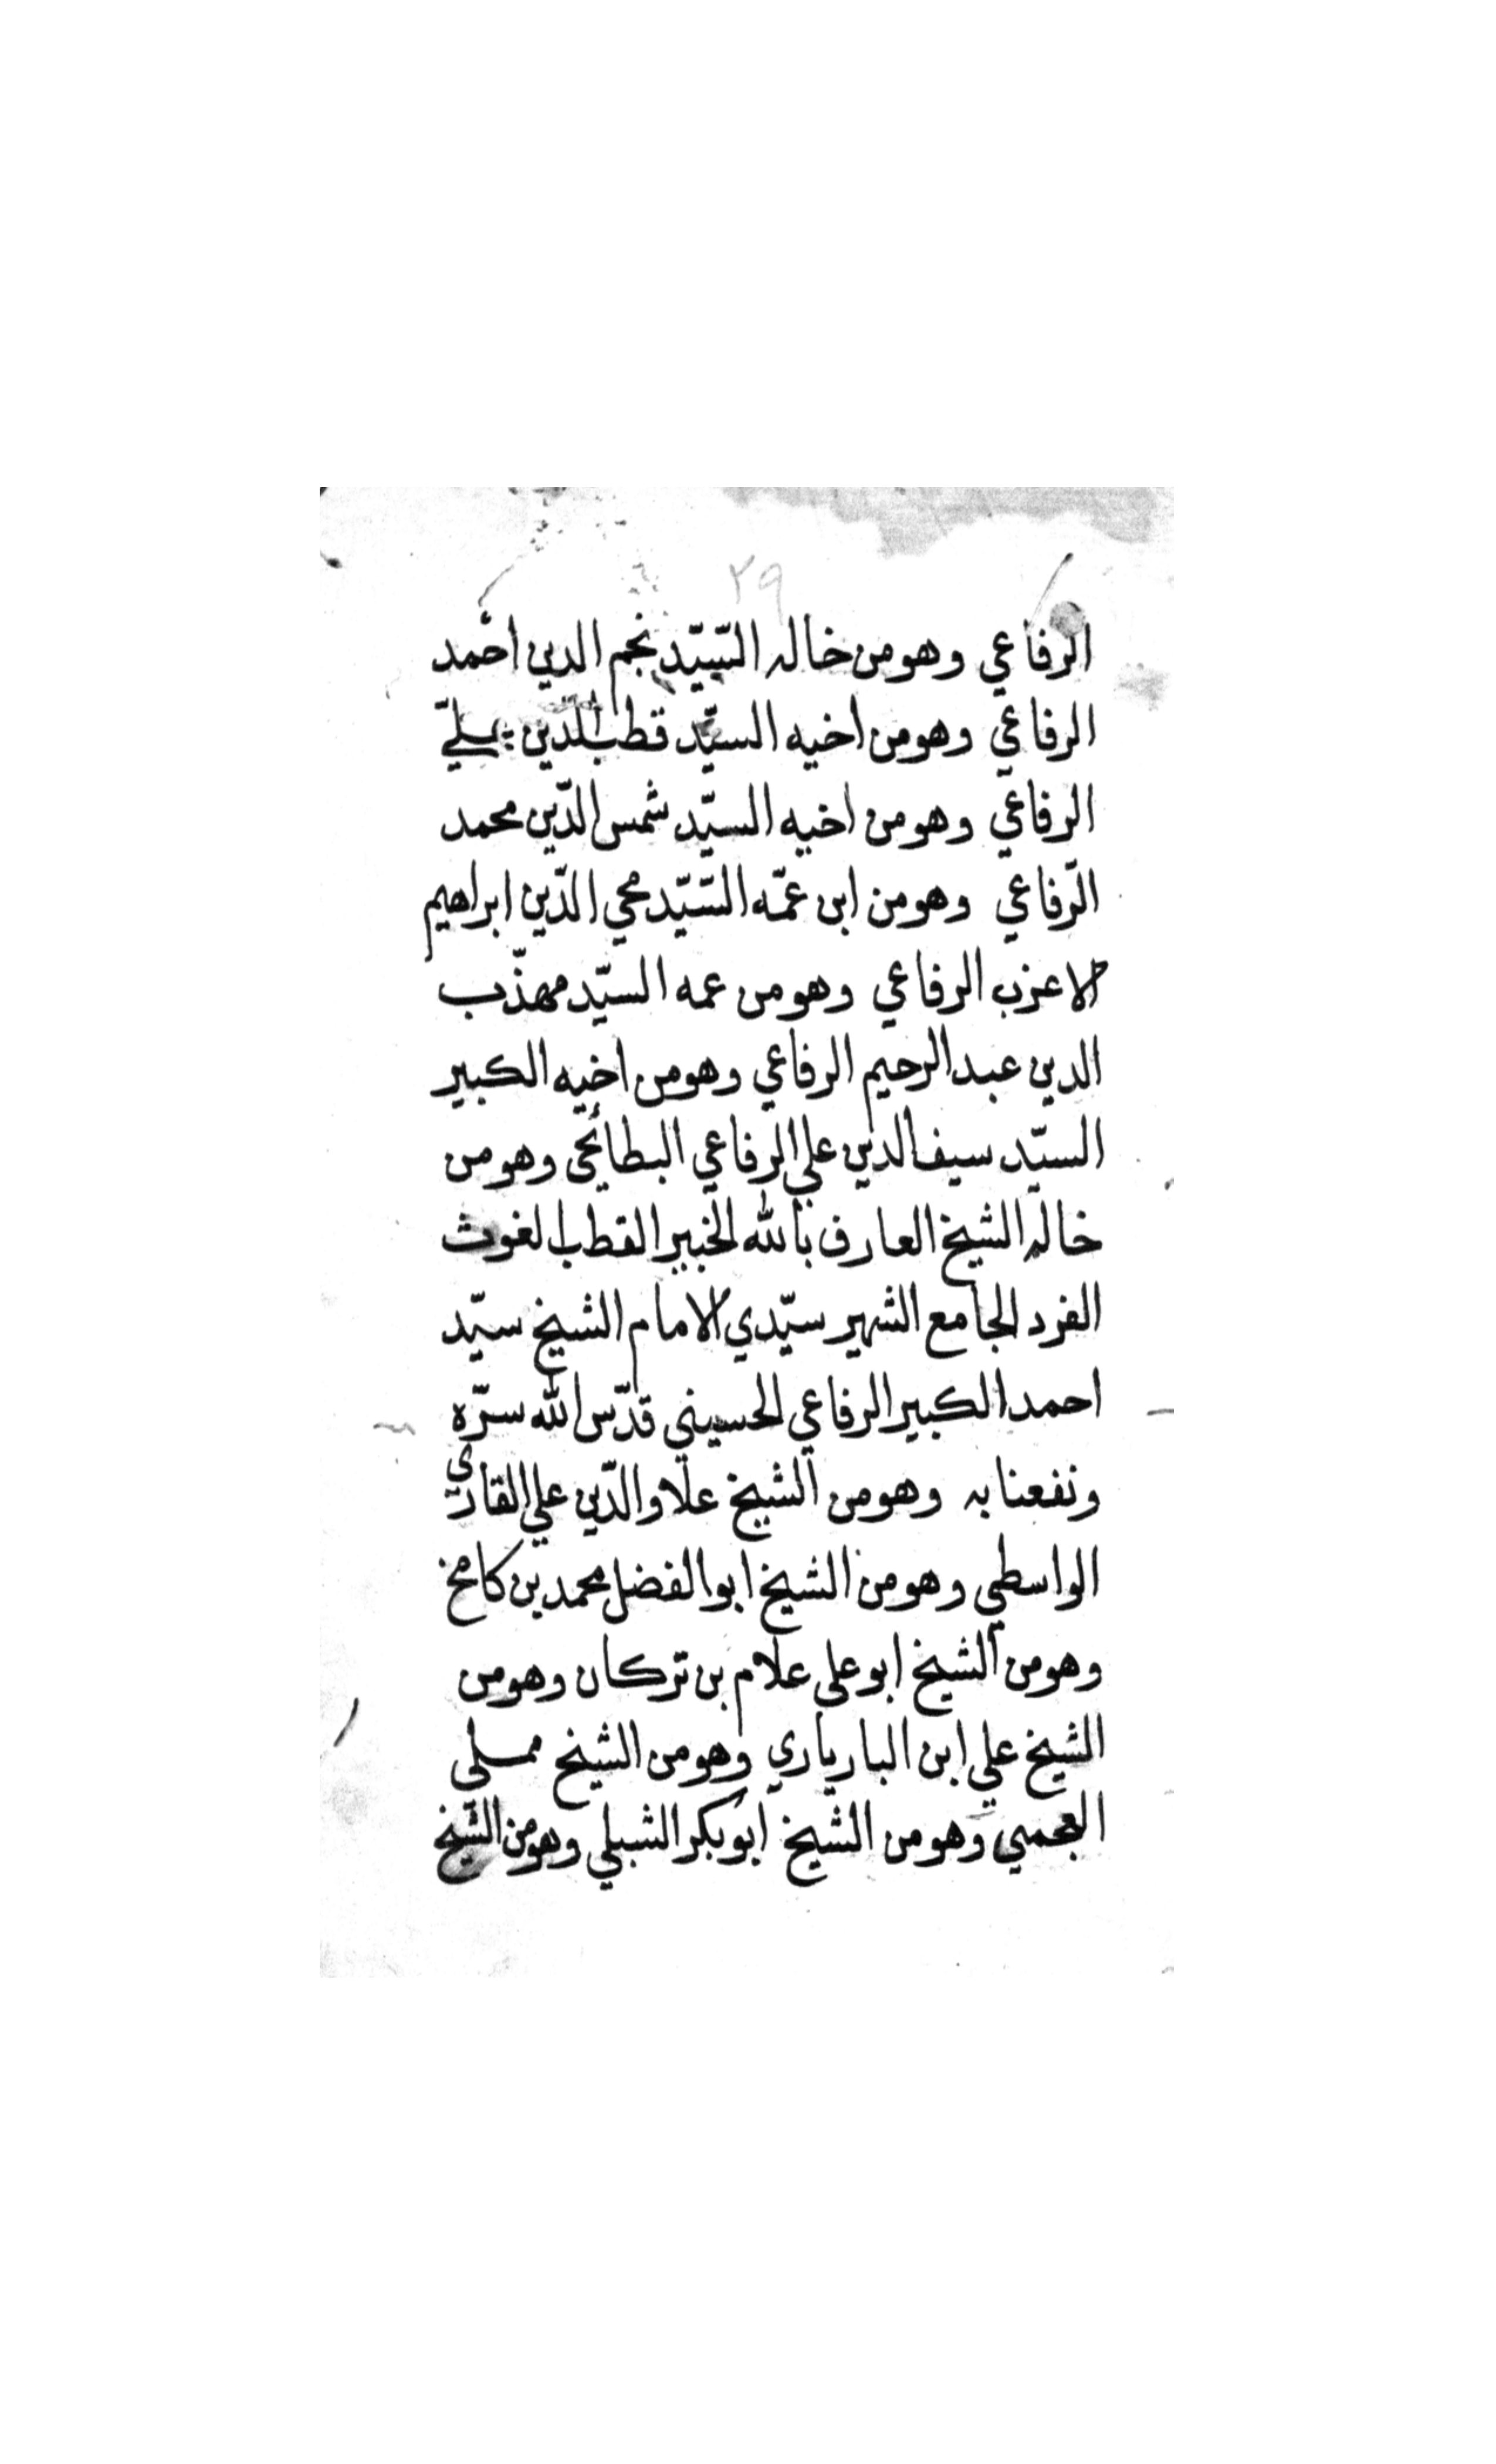 ٢٩
الرفاعي وهو من خاله السّيّد نجم الدين احمد
الرفاعي وهو من اخيه السيّد قطب الدّين
الرفاعي وهو من اخيه السيّد شمس الدّين محمد
الرّفاعي وهو من ابن عمّه السّيّد محي الدّين ابراهيم
الاعزب الرفاعي وهو من عمه السيّد مهذّب
الدين عبد الرحيم الرفاعي وهو من اخيه الكبير
السيّد سيف الدين علي الرفاعي البطائحي وهو من
خاله الشيخ العارف بالله الخبير القطب الغوث
الفرد الجامع الشهير سيّدي الامام الشيخ سيّد
احمد الكبير الرفاعي الحسيني قدّس الله سرّه
ونفعنا به وهو من الشيخ علاو الدّين علي القاري
الواسطي وهو من الشيخ ابو الفضل محمد بن كامخ
وهو من الشيخ ابو علي علام بن تركان وهو من
الشيخ علي ابن البارياري وهو من الشيخ مملي
العجمي وهو من الشيخ ابو بكر الشبلي وهو من الشيخ